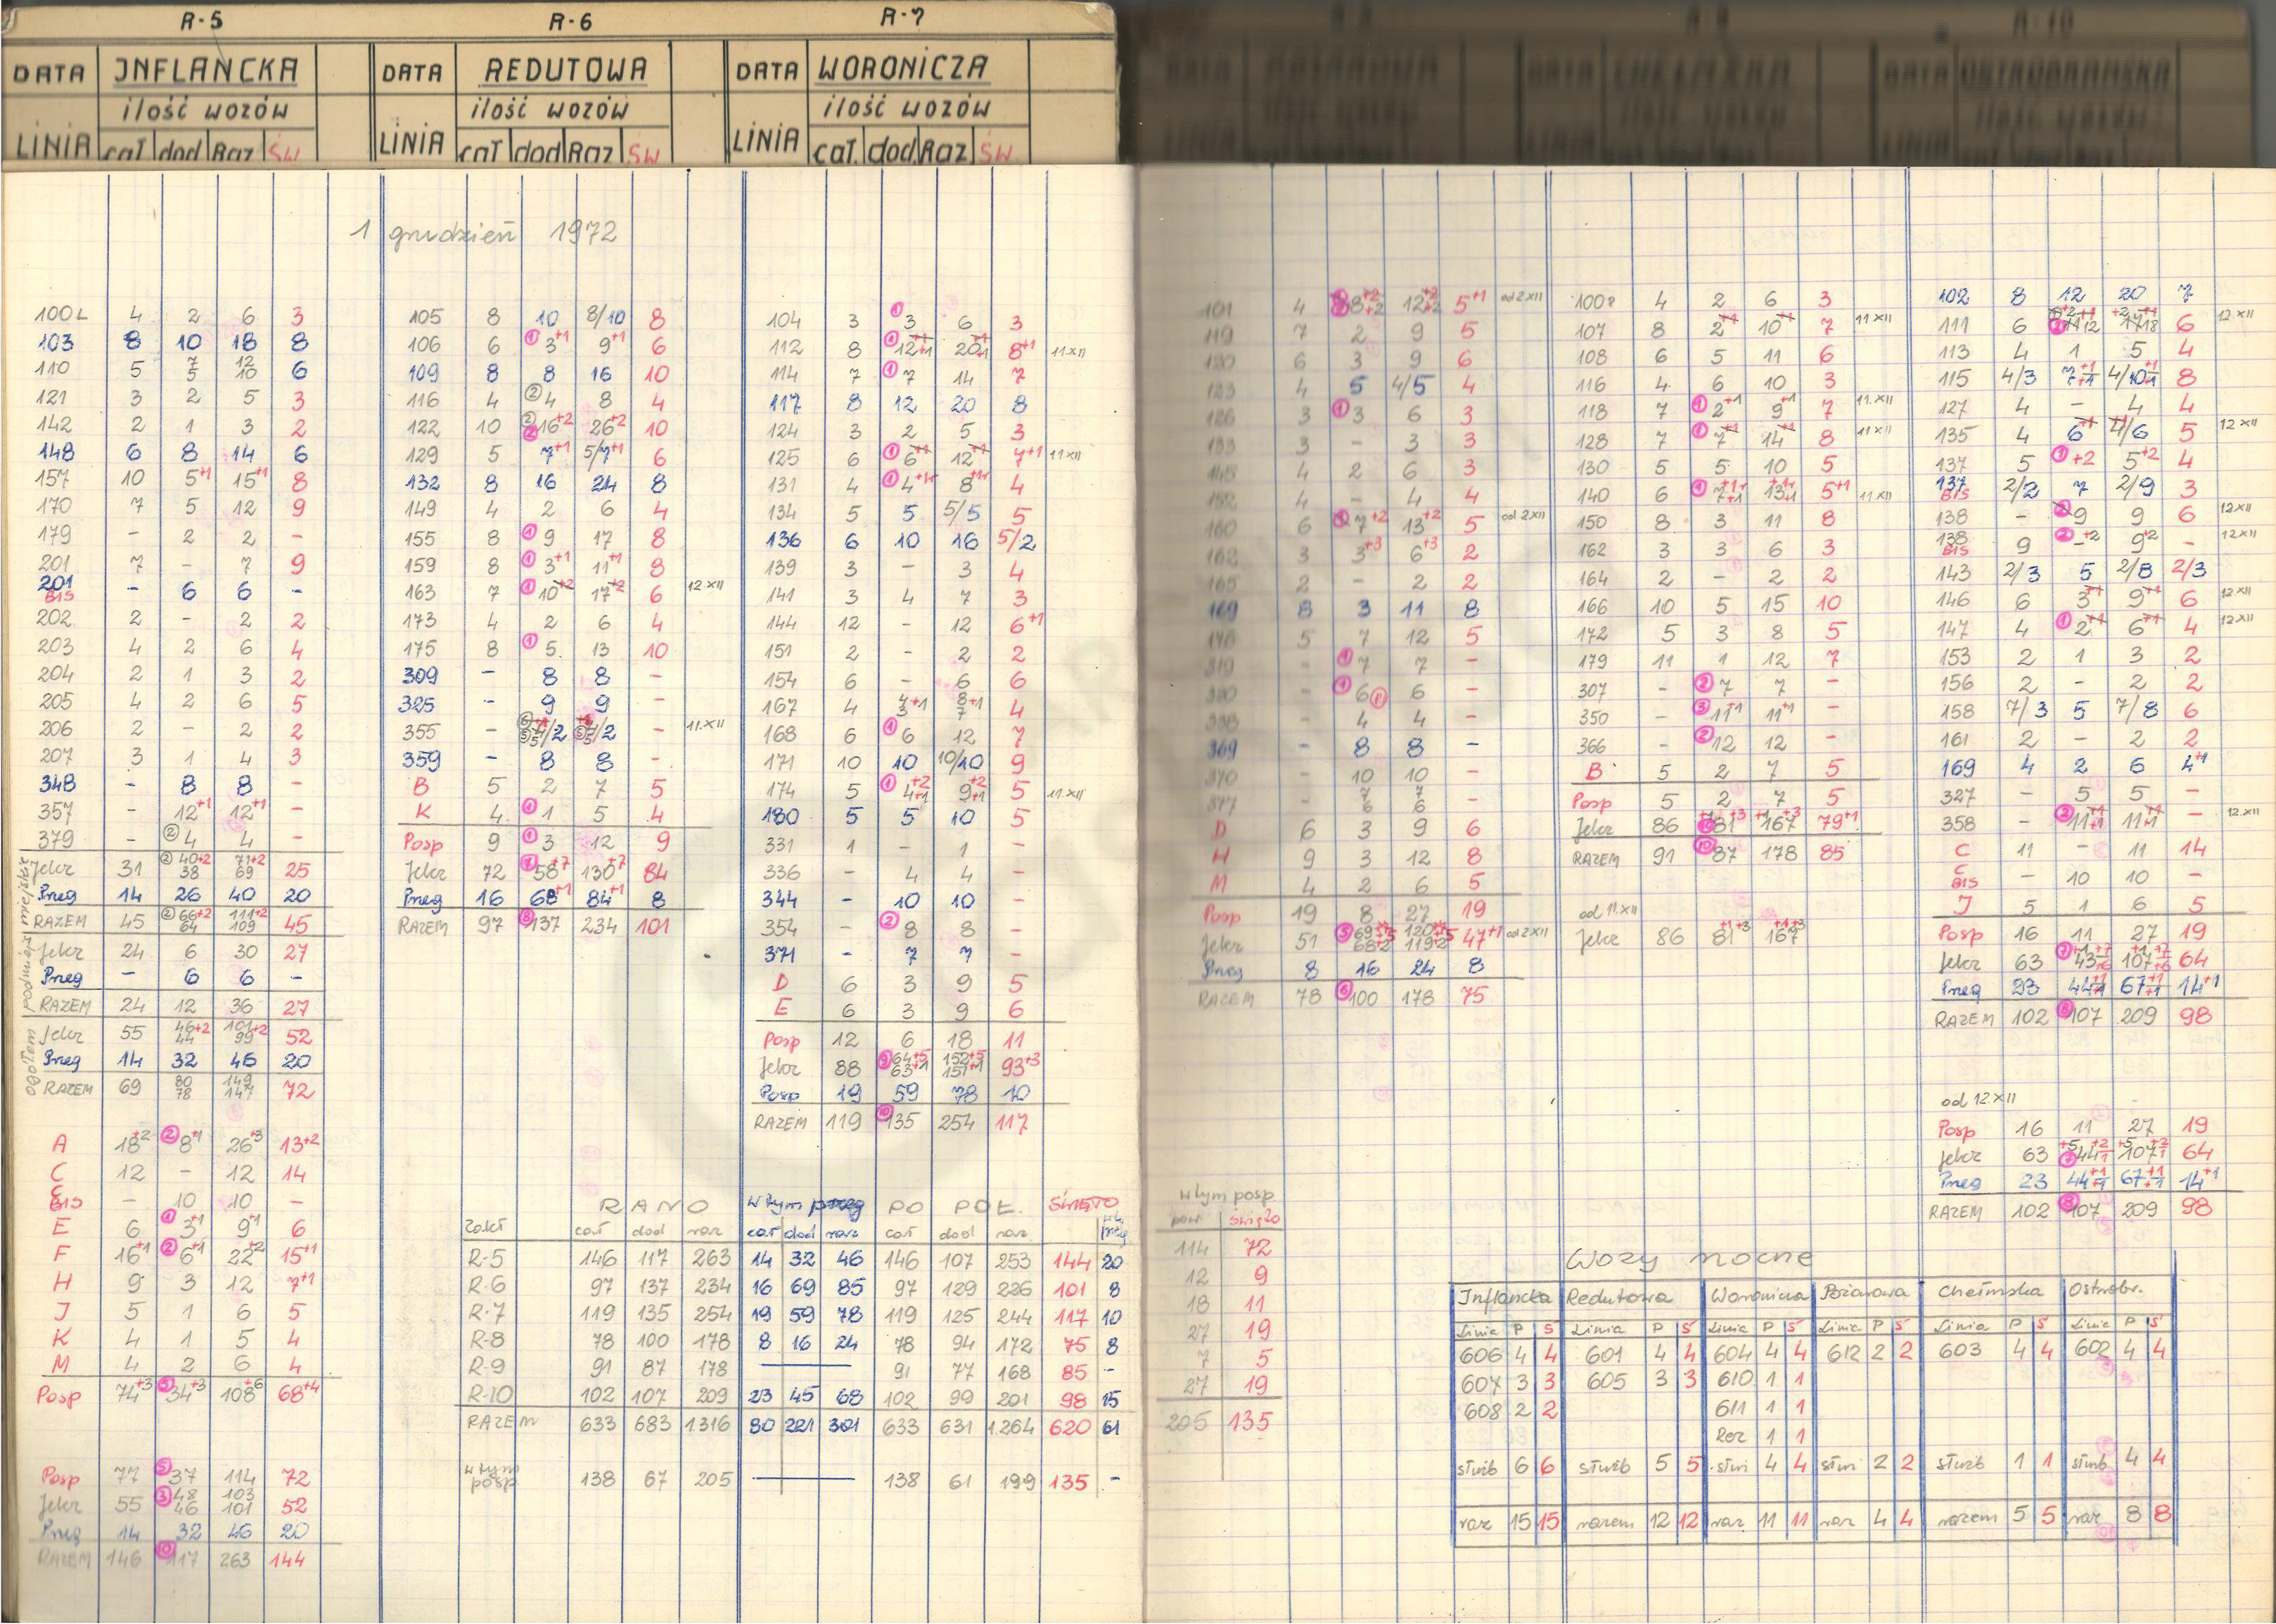 R-5
DATA INFLANCKA
ilość wozów
LINIA cał dod Raz ŚW
1 grudzień 1972
100L 4 2 6 3
103 8 10 18 8
110 5 7 5 12 10 6
121 3 2 5 3
142 2 1 3 2
148 6 8 14 6
157 10 5+1 15+1 8
170 7 5 12 9
179 - 2 2 -
201 7 - 7 9
201 BIS - 6 6 -
202 2 - 2 2
203 4 2 6 4
204 2 1 3 2
205 4 2 6 5
206 2 - 2 2
207 3 1 4 3
348 - 8 8 -
357 - 12+1 12+1 -
379 - ② 4 4 -
miejskie
Jelcz 31 ② 40+2 38 71+2 69 25
Pneg 14 26 40 20
RAZEM 45 ② 66+2 64 111+2 109 45
podmiejs
Jelcz 24 6 30 27
Pneg - 6 6 -
RAZEM 24 12 36 27
ogółem
Jelcz 55 46+2 44 101+2 99 52
Pneg 14 32 46 20
RAZEM 69 80 78 149 147 72
A 18+2 ② 8+1 26+3 13+2
C 12 - 12 14
C BIS - 10 10 -
E 6 ① 3+1 9+1 6
F 16+1 ② 6+1 22+2 15+1
H 9 3 12 7+1
J 5 1 6 5
K 4 1 5 4
M 4 2 6 4
Posp 74+3 ⑤ 34+3 108+6 68+4
Posp 77 ⑤ 37 114 72
Jelcz 55 ③ 48 46 103 101 52
Pneg 14 32 46 20
RAZEM 146 117 263 144
R-6
DATA REDUTOWA
ilość wozów
LINIA cał dod Raz ŚW
105 8 10 8/10 8
106 6 ① 3+1 9+1 6
109 8 8 16 10
116 4 ② 4 8 4
122 10 ② ② 16+2 26+2 10
129 5 7+1 5/7+1 6
132 8 16 24 8
149 4 2 6 4
155 8 ① 9 17 8
159 8 ① 3+1 11+1 8
163 7 ① 10+2 17+2 6 12 XII
173 4 2 6 4
175 8 ① 5 13 10
309 - 8 8 -
325 - 9 9 -
355 - /2 /2 - 11.XII
359 - 8 8 -
B 5 2 7 5
K 4 ① 1 5 4
Posp 9 ① 3 12 9
Jelcz 72 ⑦ 58+7 130+7 84
Pneg 16 68+1 84+1 8
RAZEM 97 ⑧ 137 234 101
R-7
DATA WORONICZA
ilość wozów
LINIA cał. dod. Raz ŚW
104 3 ① 3 6 3
112 8 ① 12+1 20+1 8+1 11 XII
114 7 ① 7 14 7
117 8 12 20 8
124 3 2 5 3
125 6 ① 6+1 12+1 7+1 11 XII
131 4 ① 4+1 8+1 4
134 5 5 5/5 5
136 6 10 16 5/2
139 3 - 3 4
141 3 4 7 3
144 12 - 12 6+1
151 2 - 2 2
154 6 - 6 6
167 4 4 3+1 8+1 7 4
168 6 ① 6 12 7
171 10 10 10/10 9
174 5 ① 4+2 +1 9+2 +1 5 11 XII
180 5 5 10 5
331 1 - 1 -
336 - 4 4 -
344 - 10 10 -
354 - ② 8 8 -
371 - 7 7 -
D 6 3 9 5
E 6 3 9 6
Posp 12 6 18 11
Jelcz 88 ⑨ 64+5 63+1 152+5 151+1 93+3
Posp 19 59 78 10
RAZEM 119 ⑩ 135 254 117
RANO w tym pneg PO POŁ. ŚWIĘTO
Zakł cał dod raz cał dod raz cał dod raz w tym pneg
R-5 146 117 263 14 32 46 146 107 253 144 20
R-6 97 137 234 16 69 85 97 129 226 101 8
R-7 119 135 254 19 59 78 119 125 244 117 10
R-8 78 100 178 8 16 24 78 94 172 75 8
R-9 91 87 178 — 91 77 168 85 -
R-10 102 107 209 23 45 68 102 99 201 98 15
RAZEM 633 683 1316 80 221 301 633 631 1.264 620 61
w tym posp. 138 67 205 — 138 61 199 135 -
101 4 8+2 +2 12+2 +2 5+1 od 2 XII
119 7 2 9 5
120 6 3 9 6
123 4 5 4/5 4
126 3 ① 3 6 3
133 3 - 3 3
145 4 2 6 3
152 4 - 4 4
160 6 ① 7+2 13+2 5 od 2 XII
162 3 3+3 6+3 2
165 2 - 2 2
169 8 3 11 8
176 5 7 12 5
319 - ① 7 7 -
320 - ① 6 6 -
- 4 4 -
369 - 8 8 -
370 - 10 10 -
377 - 7 6 7 6 -
D 6 3 9 6
H 9 3 12 8
M 4 2 6 5
Posp 19 8 27 19
Jelcz 51 ⑤ 69+5 68+2 120+5 119+2 47+1 od 2 XII
Pneg 8 16 24 8
RAZEM 78 ⑥ 100 178 75
w tym posp.
pow święto
114 72
12 9
18 11
27 19
7 5
27 19
205 135
100P 4 2 6 3
107 8 2+1 10+1 7 11 XII
108 6 5 11 6
116 4 6 10 3
118 7 ① 2+1 9+1 7 11.XII
128 7 ① 7+1 14+1 8 11 XII
130 5 5 10 5
140 6 ① 7+1 +1 13+1 +1 5+1 11 XII
150 8 3 11 8
162 3 3 6 3
164 2 - 2 2
166 10 5 15 10
172 5 3 8 5
179 11 1 12 7
307 - ② 7 7 -
350 - ③ 11+1 11+1 -
366 - ② 12 12 -
B 5 2 7 5
Posp 5 2 7 5
Jelcz 86 ⑩ 81+3 167+3 79+1
RAZEM 91 ⑩ 87 178 85
od 11.XII
Jelcz 86 81+1+3 167+1+3
102 8 12 20 7
111 6 12 18 6 12 XII
113 4 1 5 4
115 4/3 7+1 +1 4/10+1 +1 8
127 4 - 4 4
135 4 6+1 4/6 5 12 XII
137 5 ① +2 5+2 4
137 BIS 2/2 7 2/9 3
138 - ② 9 9 6 12 XII
138 BIS 9 ② -+2 9+2 - 12 XII
143 2/3 5 2/8 2/3
146 6 3+1 9+1 6 12 XII
147 4 ① 2+1 6+1 4 12 XII
153 2 1 3 2
156 2 - 2 2
158 7/3 5 7/8 6
161 2 - 2 2
169 4 2 6 4+1
327 - 5 5 -
358 - ② 11+1 +1 11+1 +1 - 12.XII
C 11 - 11 14
C BIS - 10 10 -
J 5 1 6 5
Posp 16 11 27 19
Jelcz 63 ⑦ 43 +6 107 +6 64
Pneg 23 44+1 +1 67+1 +1 14+1
RAZEM 102 ⑧ 107 209 98
od 12 XII
Posp 16 11 27 19
Jelcz 63 ⑦ 44 107 64
Pneg 23 44+1 +1 67+1 +1 14+1
RAZEM 102 ⑧ 107 209 98
Wozy nocne
Inflancka Redutowa Woronicza Pożarowa Chełmska Ostrobr.
Linia P Ś Linia P Ś Linia P Ś Linia P Ś Linia P Ś Linia P Ś
606 4 4 601 4 4 604 4 4 612 2 2 603 4 4 602 4 4
607 3 3 605 3 3 610 1 1
608 2 2 611 1 1
Rez 1 1
służb 6 6 służb 5 5 służ 4 4 służ 2 2 służb 1 1 służb 4 4
raz 15 15 razem 12 12 raz 11 11 raz 4 4 razem 5 5 raz 8 8